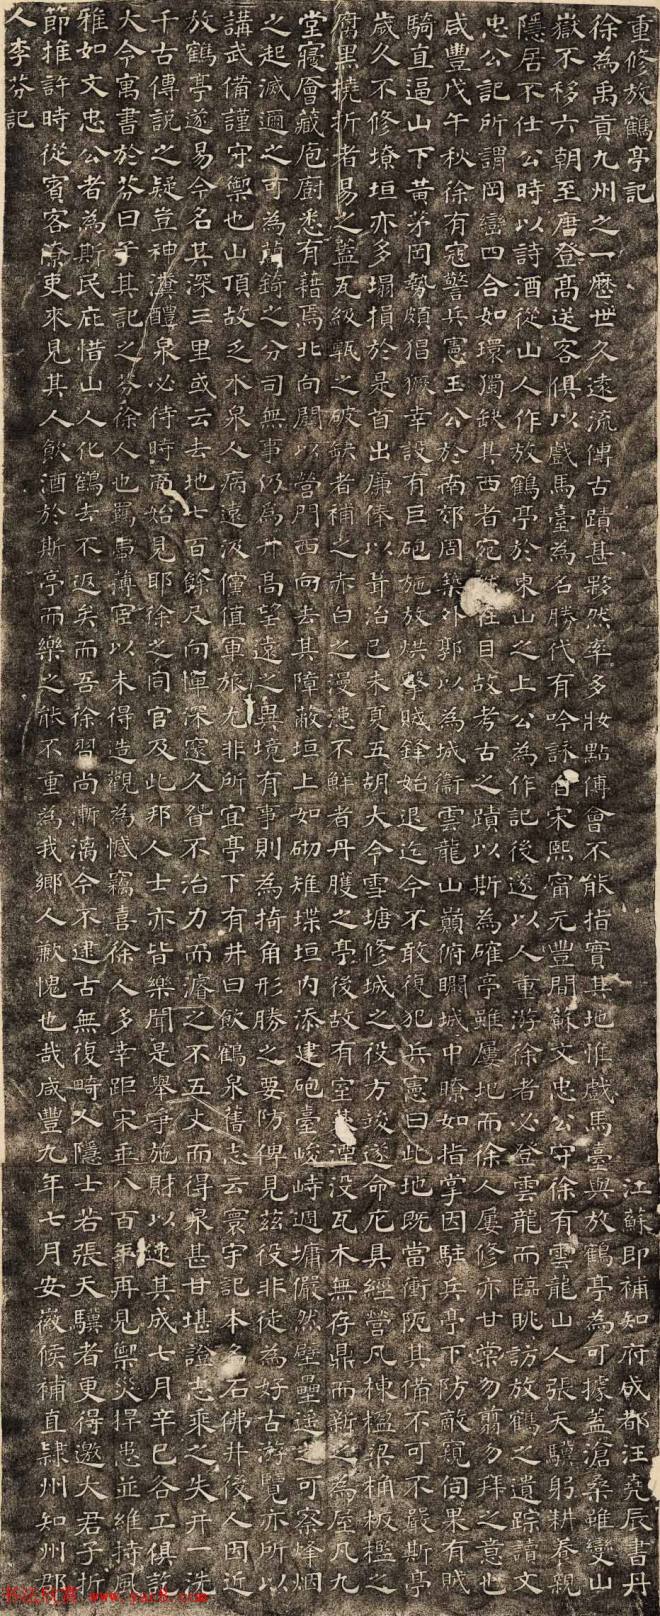 重修放鶴亭記
江蘇即補知府成都汪堯辰書丹
徐為禹貢九州之一歷世久遠流傳古蹟甚夥然率多妝點傅會不能指實其地惟戲馬臺與放鶴亭為可據蓋滄桑雖變山
嶽不移六朝至唐登高送客俱以戲馬臺為名勝代有吟詠自宋熙甯元豐間蘇文忠公守徐有雲龍山人張天驥躬耕養親
隱居不仕公時以詩酒從山人作放鶴亭於東山之上公為作記後遂以人重游徐者必登雲龍而臨眺訪放鶴之遺踪讀文
忠公記所謂岡巒四合如環獨缺其西者宛然在目故考古之蹟以斯為確亭雖屢圮而徐人屢修亦甘棠勿翦勿拜之意也
咸豐戊午秋徐有寇警兵憲王公於南郊周築外郭以為城衞雲龍山巔俯瞰城中瞭如指掌因駐兵亭下防敵窺伺果有賊
騎直逼山下黃茅岡勢頗猖獗幸設有巨砲施放烘擊賊鋒始退迄今不敢復犯兵憲曰此地既當衝阨其備不可不嚴斯亭
歲久不修墩垣亦多塌損於是首出廉俸以葺治己未夏五胡大令雪塘修城之役方竣遂命庀具經營凡棟楹梁桷板檻之
腐黑撓折者易之蓋瓦級甎之破缺者補之赤白之漫漶不鮮者丹雘之亭後故有室基湮沒瓦木無存鼎而新之為屋凡九
堂寢會藏庖廚悉有藉焉北向闢以營門西向去其障蔽垣上如砌雉堞垣內添建砲臺峻峙週墉儼然壁壘遠近可察烽烟
之起滅邇之可為蘭錡之分司無事仍為升高望遠之異境有事則為掎角形勝之要防俾見茲役非徒為好古游覽亦所以
講武備謹守禦也山頂故乏水泉人病遠汲儻值軍旅尤非所宜亭下有井曰飲鶴泉舊志云寰宇記本名石佛井後人因近
放鶴亭遂易今名其深三里或云去地七百餘尺向憚深邃久眢不治力而濬之不五丈而得泉甚甘堪證志乘之失并一洗
千古傳說之疑豈神瀵醴泉必待時而始見耶徐之同官及此邦人士亦皆樂聞是舉爭施財以速其成七月辛巳各工俱訖
大令寓書於芬曰子其記之芬徐人也羈官薄宦以未得造觀為憾竊喜徐人多幸距宋垂八百年再見禦災捍患並維持風
雅如文忠公者為斯民庇惜山人化鶴去不返矣而吾徐習尚漸漓今不逮古無復畸人隱士若張天驥者更得邀大君子折
節推許時從賓客僚吏來見其人飲酒於斯亭而樂之能不重為我鄉人歉愧也哉咸豐九年七月安徽候補直隸州知州郡
人李芬記
书法欣赏 www.yac8.com